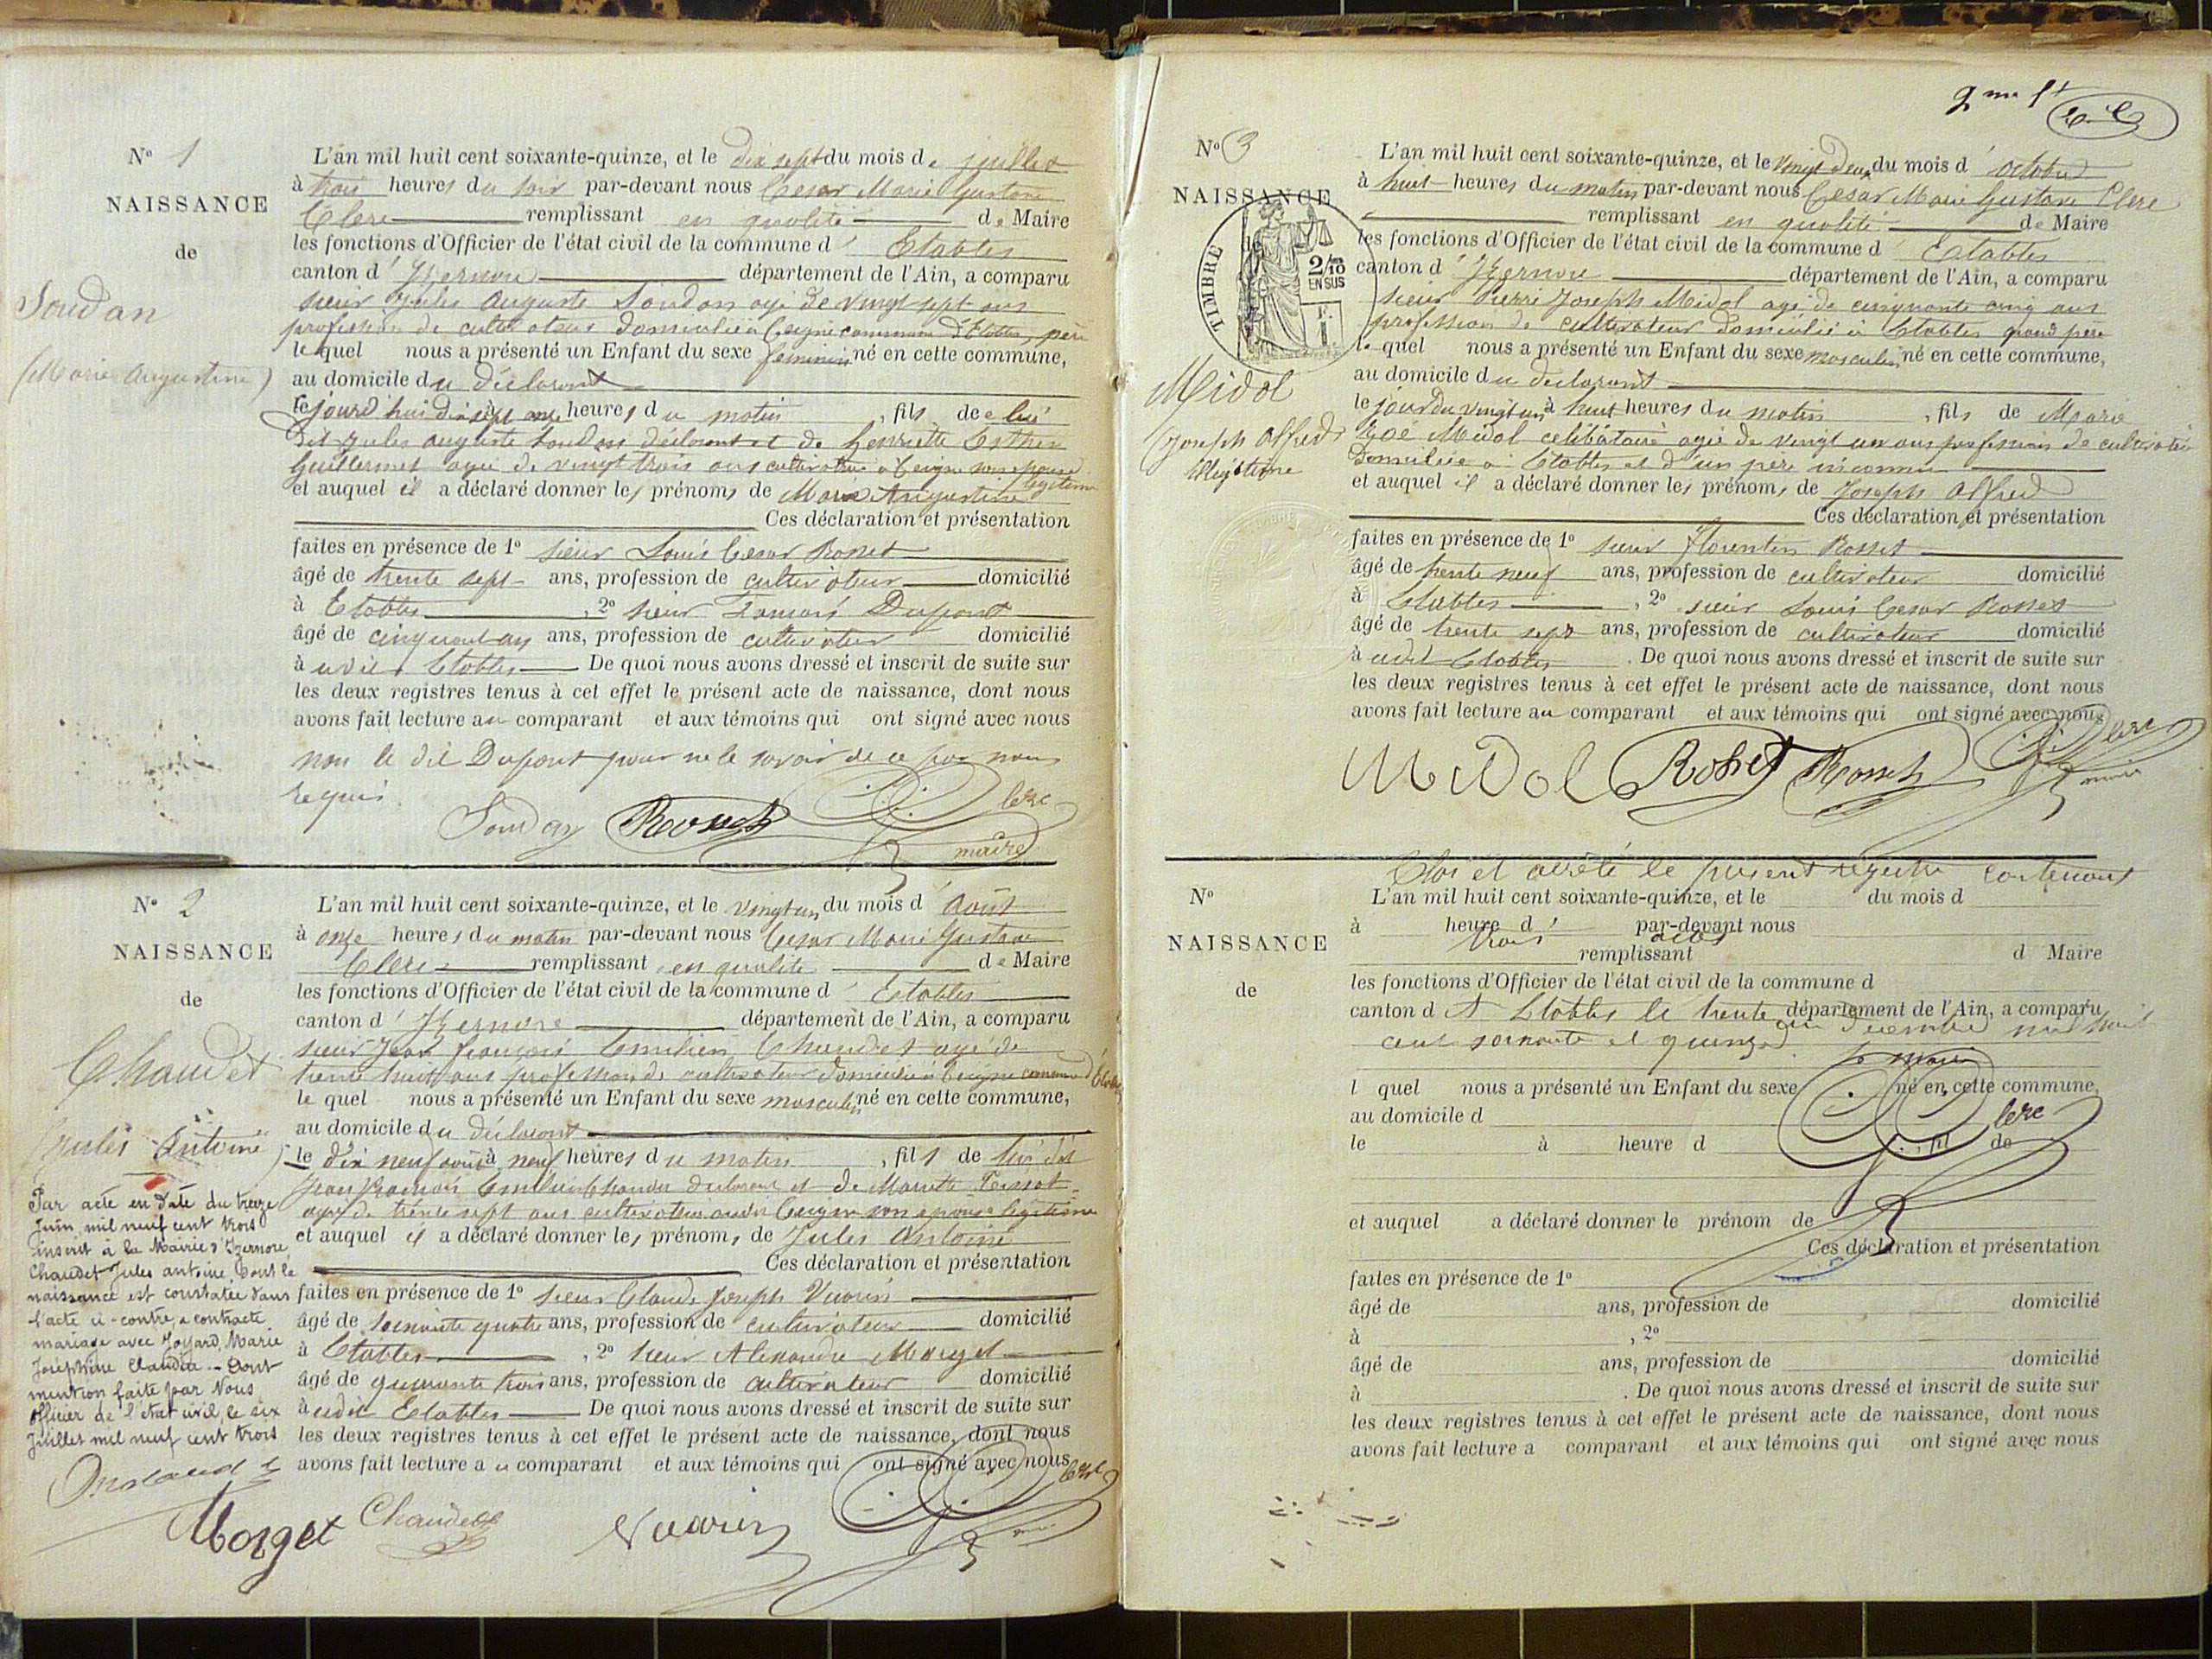 N° 1
NAISSANCE
de
Soudan
(Marie Augustine)
L'an mil huit cent soixante-quinze, et le dix sept du mois de juillet
à trois heures du soir par-devant nous Cesar Marie Gustave
Clerc remplissant en qualité de Maire
les fonctions d'Officier de l'état civil de la commune d' Etables
canton d' Izernore département de l'Ain, a comparu
sieur Jules Auguste Soudan agé de vingt sept ans
profession de cultivateur domicilié à Ceigne commune d'Etables, père
le quel nous a présenté un Enfant du sexe feminin né en cette commune,
au domicile du déclarant
le jourd'hui dix sept à onze heures du matin, fils de lui
dit Jules Auguste Soudan déclarant et de Henriette Esther
Guillermet agée de vingt trois ans cultivatrice à Ceigne son épouse légitime
et auquel il a déclaré donner les prénoms de Marie Augustine
Ces déclaration et présentation
faites en présence de 1° sieur Louis Cesar Rosset
âgé de trente sept ans, profession de cultivateur domicilié
à Etables, 2° sieur François Dupont
âgé de cinquante ans, profession de cultivateur domicilié
à Etables De quoi nous avons dressé et inscrit de suite sur
les deux registres tenus à cet effet le présent acte de naissance, dont nous
avons fait lecture au comparant et aux témoins qui ont signé avec nous
non le dit Dupont pour ne le savoir de ce par nous
requis.
Soudan Rosset Clerc
maire
N° 2
NAISSANCE
de
Chaudet
Jules Antoine
L'an mil huit cent soixante-quinze, et le vingt un du mois d' Août
à onze heures du matin par-devant nous Cesar Marie Gustave
Clerc remplissant en qualité de Maire
les fonctions d'Officier de l'état civil de la commune d' Etables
canton d' Izernore département de l'Ain, a comparu
sieur Jean François Emilien Chaudet agé de
trente huit ans profession de cultivateur domicilié à Ceigne commune d'Etables
le quel nous a présenté un Enfant du sexe masculin né en cette commune,
au domicile du déclarant
le dix neuf août à neuf heures du matin, fils de lui dit
Jean François Emilien Chaudet déclarant et de Mariette
agée de trente sept ans cultivatrice audit Ceigne son épouse légitime
et auquel il a déclaré donner les prénoms de Jules Antoine
Ces déclaration et présentation
faites en présence de 1° sieur Claude Joseph Vuarin
âgé de soixante quatre ans, profession de cultivateur domicilié
à Etables, 2° sieur Alexandre Morget
âgé de quarante trois ans, profession de cultivateur domicilié
à udit Etables De quoi nous avons dressé et inscrit de suite sur
les deux registres tenus à cet effet le présent acte de naissance, dont nous
avons fait lecture au comparant et aux témoins qui ont signé avec nous
Par acte en date du treize
Juin mil neuf cent trois
inscrit à la Mairie d'Izernore,
Chaudet Jules antoine, dont la
naissance est constatée dans
l'acte ci-contre, a contracté
mariage avec Joyard, Marie
Joséphine Claudia - Dont
mention faite par Nous
officier de l'état civil, le six
Juillet mil neuf cent trois
Morget Chaudet Vuarin Clerc
2me ft
N° 3
NAISSANCE
de
TIMBRE
2/10
EN SUS
Midol
(Joseph Alfred)
illégitime
L'an mil huit cent soixante-quinze, et le vingt deux du mois d' octobre
à huit heures du matin par-devant nous Cesar Marie Gustave Clerc
remplissant en qualité de Maire
les fonctions d'Officier de l'état civil de la commune d' Etables
canton d' Izernore département de l'Ain, a comparu
sieur Pierre Joseph Midol agé de cinquante cinq ans
profession de cultivateur domicilié à Etables grand père
le quel nous a présenté un Enfant du sexe masculin né en cette commune,
au domicile du déclarant
le jour du vingt un à huit heures du matin, fils de Marie
Zoé Midol célibataire agée de vingt un ans profession de cultivatrice
domiciliée à Etables et d'un père inconnu
et auquel il a déclaré donner les prénoms de Joseph Alfred
Ces déclaration et présentation
faites en présence de 1° sieur Florentin Rosset
âgé de trente neuf ans, profession de cultivateur domicilié
à Etables, 2° sieur Louis Cesar Rosset
âgé de trente sept ans, profession de cultivateur domicilié
à udit Etables. De quoi nous avons dressé et inscrit de suite sur
les deux registres tenus à cet effet le présent acte de naissance, dont nous
avons fait lecture au comparant et aux témoins qui ont signé avec nous
Midol Rosset Rosset Clerc
maire
Clos et arrêté le présent registre contenant
N°
NAISSANCE
de
L'an mil huit cent soixante-quinze, et le du mois d
à heure d par-devant nous
trois actes
remplissant d Maire
les fonctions d'Officier de l'état civil de la commune d
canton d département de l'Ain, a comparu
A Etables le trente un décembre mil huit
cent soixante et quinze
le maire
l quel nous a présenté un Enfant du sexe né en cette commune,
au domicile d
Clerc
le à heure d, fil de
et auquel a déclaré donner le prénom de
Ces déclaration et présentation
faites en présence de 1°
âgé de ans, profession de domicilié
à , 2°
âgé de ans, profession de domicilié
à . De quoi nous avons dressé et inscrit de suite sur
les deux registres tenus à cet effet le présent acte de naissance, dont nous
avons fait lecture a comparant et aux témoins qui ont signé avec nous